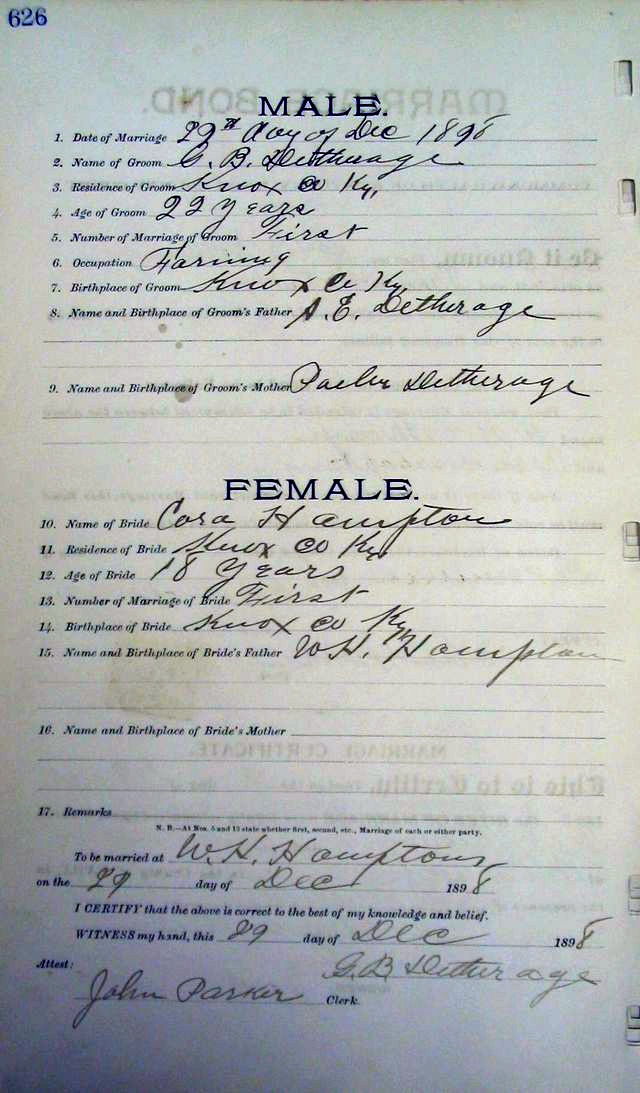 626
MALE.
1. Date of Marriage 29th day of Dec 1898
2. Name of Groom G. B. Detherage
3. Residence of Groom Knox Co Ky,
4. Age of Groom 22 Years
5. Number of Marriage of Groom First
6. Occupation Farming
7. Birthplace of Groom Knox Co Ky,
8. Name and Birthplace of Groom's Father A. E. Detherage
9. Name and Birthplace of Groom's Mother Detherage
FEMALE.
10. Name of Bride Cora Hampton
11. Residence of Bride Knox Co Ky
12. Age of Bride 18 Years
13. Number of Marriage of Bride First
14. Birthplace of Bride Knox Co Ky,
15. Name and Birthplace of Bride's Father W.H. Hampton
16. Name and Birthplace of Bride's Mother
17. Remarks
N. B.—At Nos. 5 and 13 state whether first, second, etc., Marriage of each or either party.
To be married at W. H. Hamptons
on the 29 day of Dec 1898
I CERTIFY that the above is correct to the best of my knowledge and belief.
WITNESS my hand, this 29 day of Dec 1898
Attest: G. B. Detherage
John Parker Clerk.